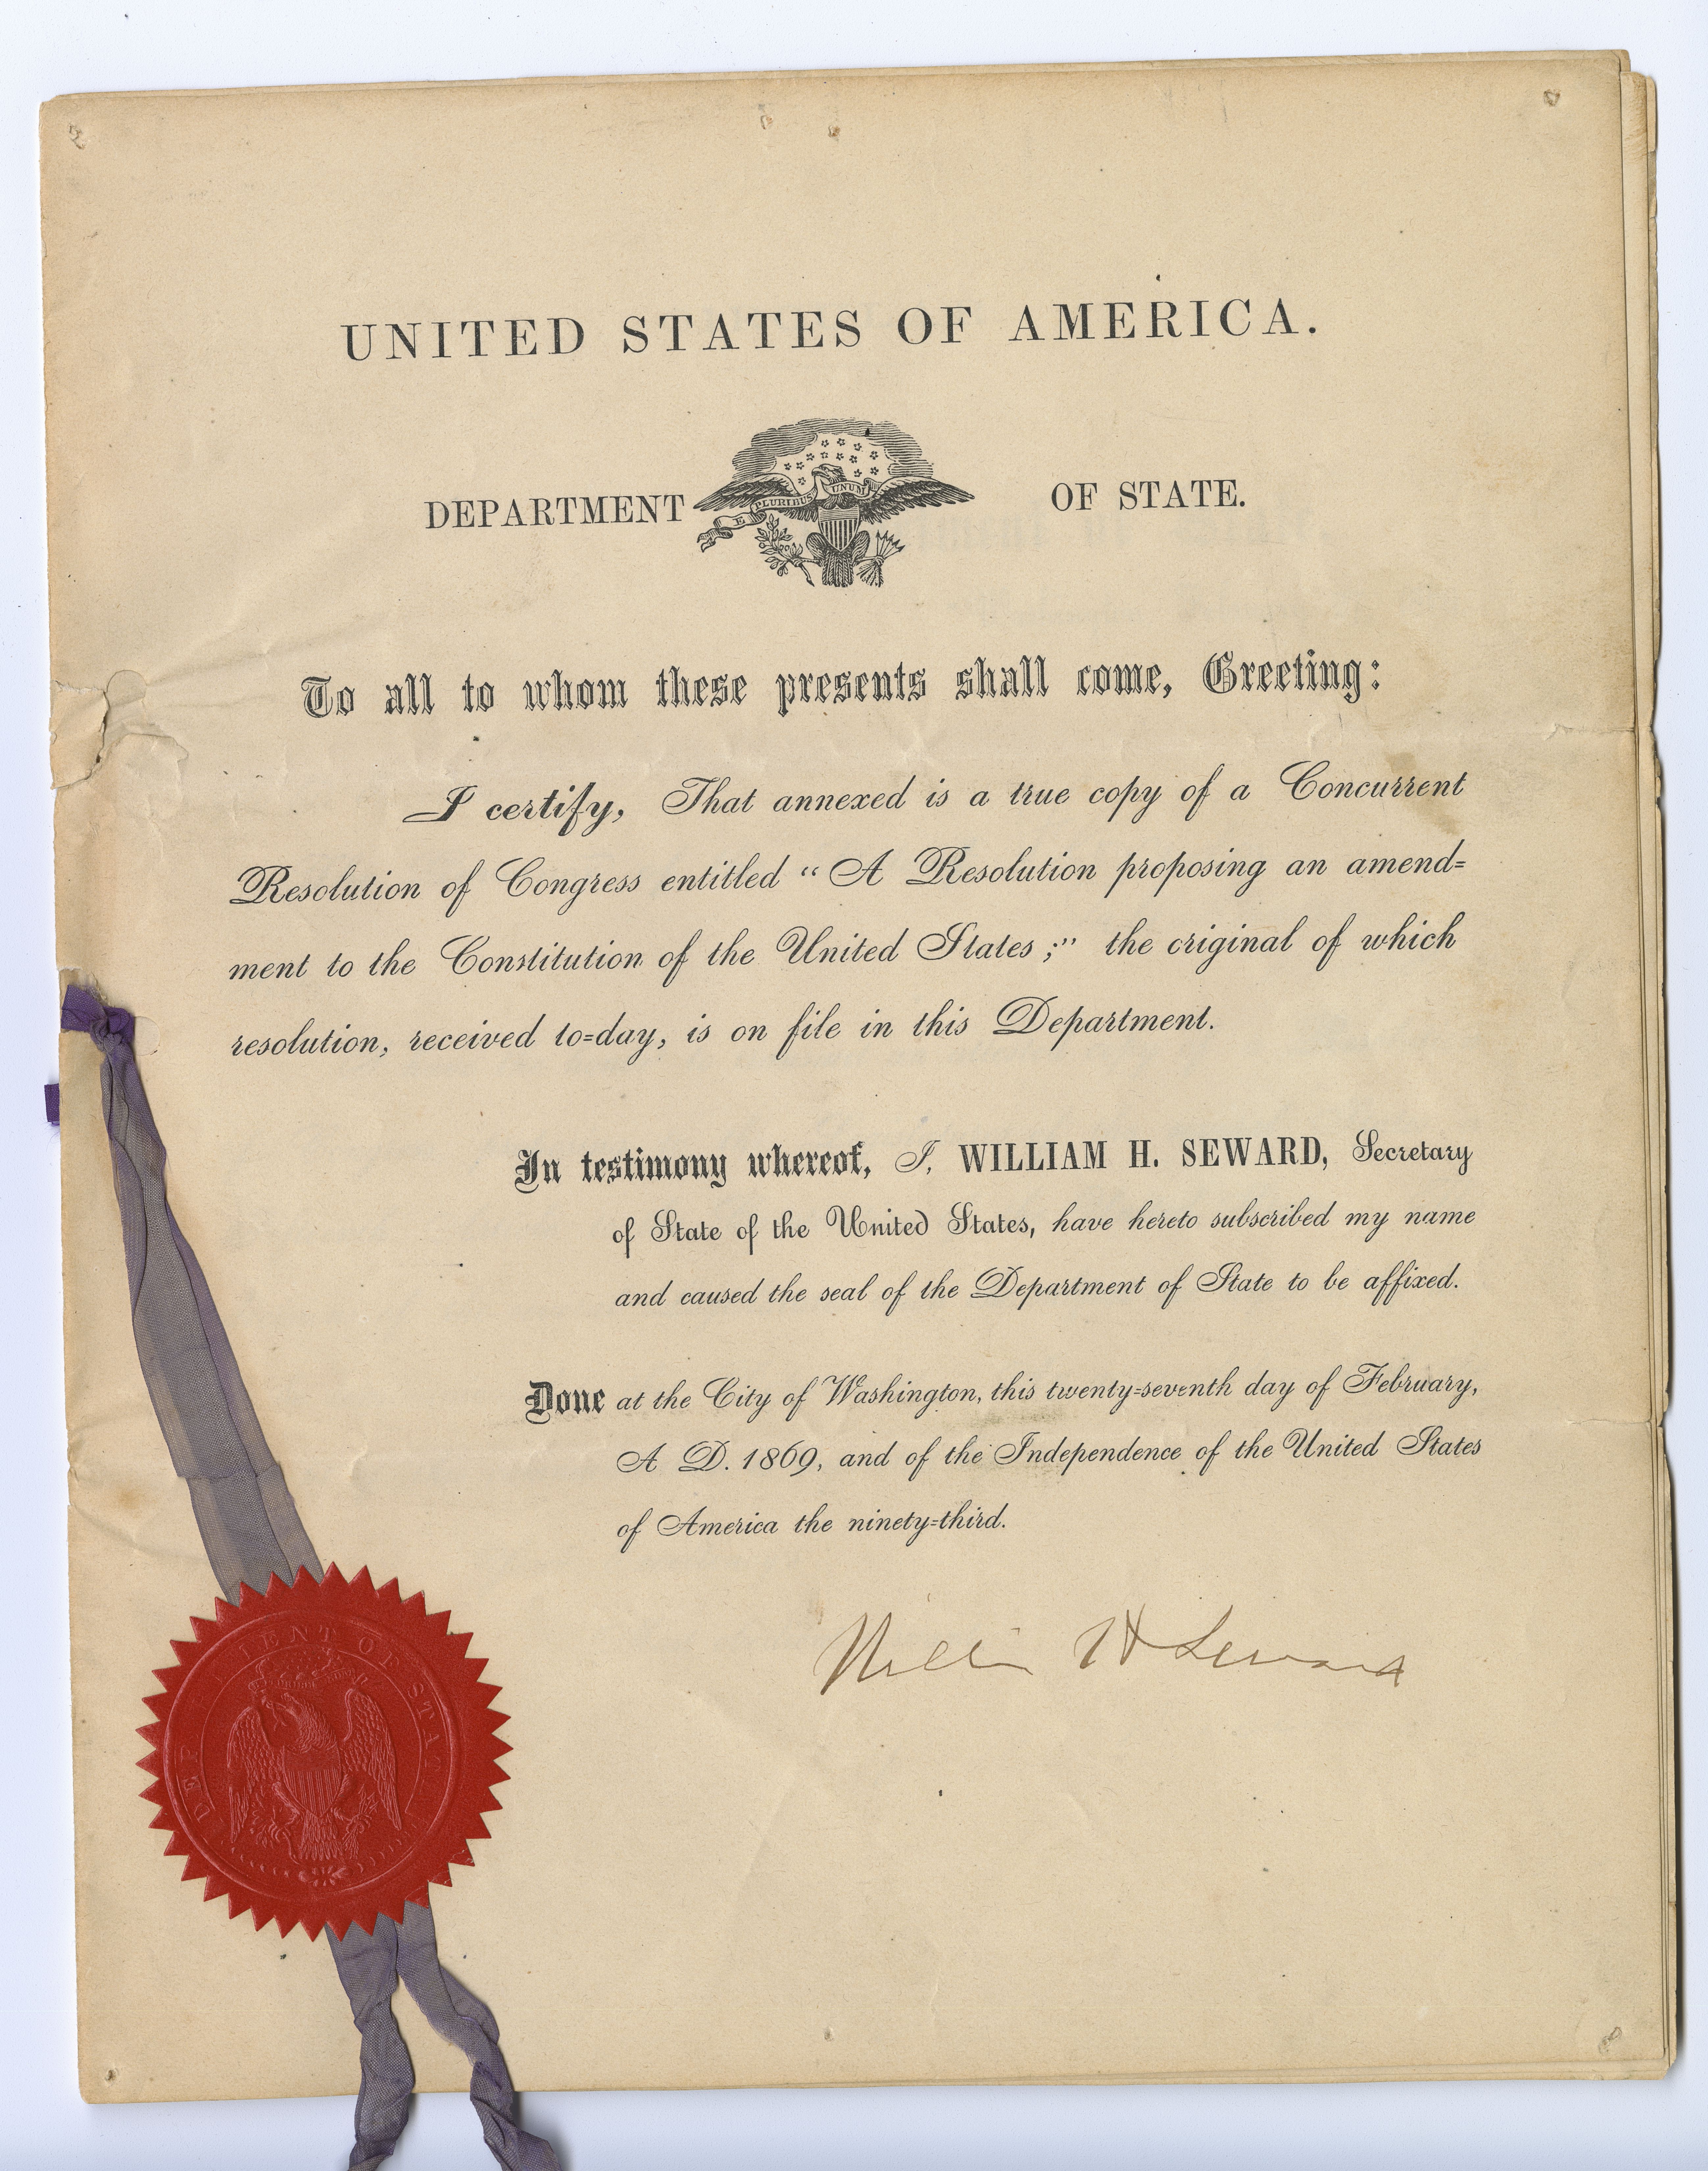 UNITED STATES OF AMERICA.
DEPARTMENT OF STATE.
E PLURIBUS UNUM
To all to whom these presents shall come, Greeting:
I certify, That annexed is a true copy of a Concurrent
Resolution of Congress entitled “ A Resolution proposing an amend=
ment to the Constitution of the United States ;” the original of which
resolution, received to=day, is on file in this Department.
In testimony whereof, I, WILLIAM H. SEWARD, Secretary
of State of the United States, have hereto subscribed my name
and caused the seal of the Department of State to be affixed.
Done at the City of Washington, this twenty=seventh day of February,
A D. 1869, and of the Independence of the United States
of America the ninety=third.
William H Seward
DEPARTMENT OF STATE